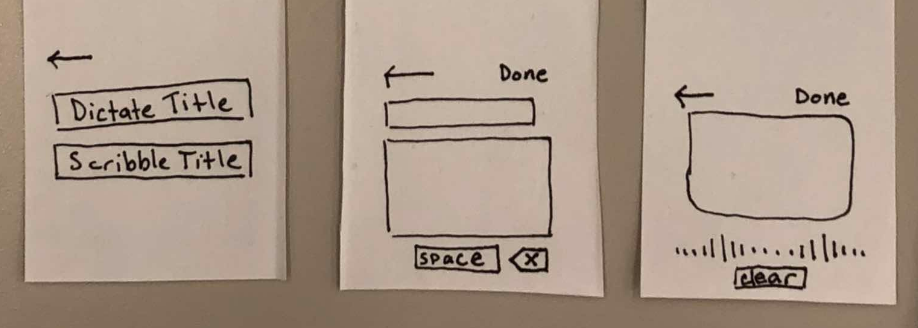 Dictate Title
Scribble Title
Done
space
X
Done
clear